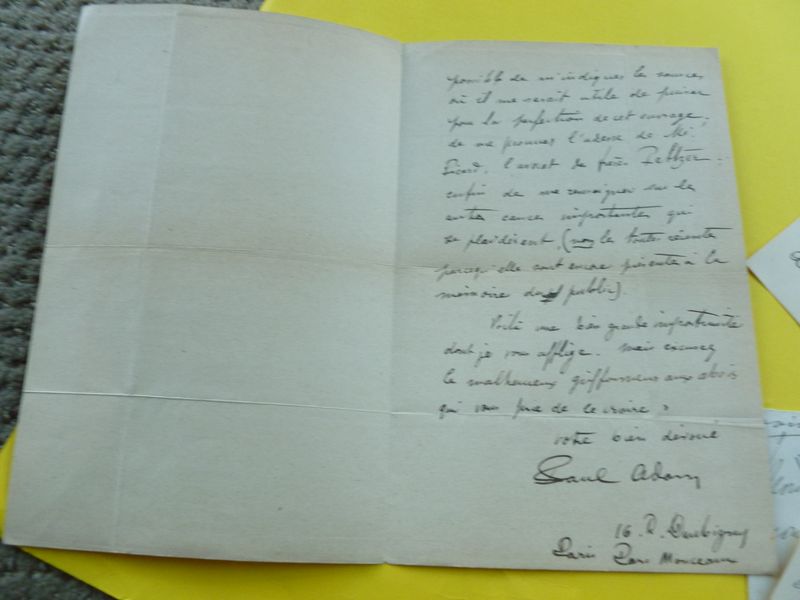 possible de m'indiquer les sources
où il me serait utile de puiser
pour la perfection de cet ouvrage,
de me procurer l'adresse de Me
Picard, l'avocat de frères Peltzer.
enfin de me renseigner sur les
autres causes importantes qui
se plaidèrent (non les toutes récentes
parcequ'elle sont encore présente à la
mémoire du public).
Voilà une bien grande importunité
dont je vous afflige. Mais excusez
le malheureux griffonneur aux abois
qui vous prie de le croire
votre bien dévoué
Paul Adam
16 R. Daubigny
Paris Parc Monceau